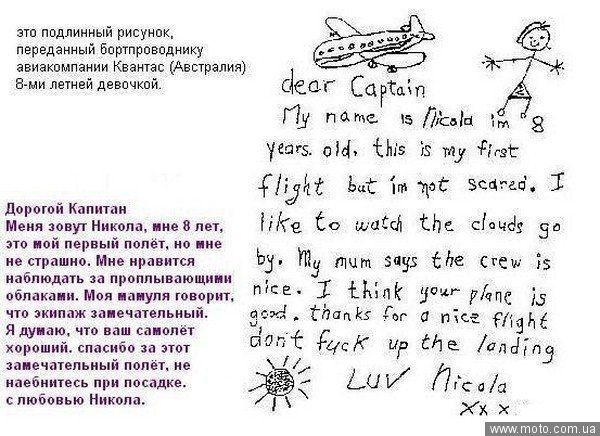 это подлинный рисунок,
переданный бортпроводнику
авиакомпании Квантас (Австралия)
8-ми летней девочкой.
dear Captain
My name is Nicola im 8
years old, this is my first
flight but im not scared. I
like to watch the clouds go
by. My mum says the crew is
nice. I think your plane is
good. thanks for a nice flight
don't fuck up the landing
LUV Nicola
xxx
Дорогой Капитан
Меня зовут Никола, мне 8 лет,
это мой первый полёт, но мне
не страшно. Мне нравится
наблюдать за проплывающими
облаками. Моя мамуля говорит,
что экипаж замечательный.
Я думаю, что ваш самолёт
хороший. спасибо за этот
замечательный полёт, не
наебнитесь при посадке.
с любовью Никола.
www.moto.com.ua